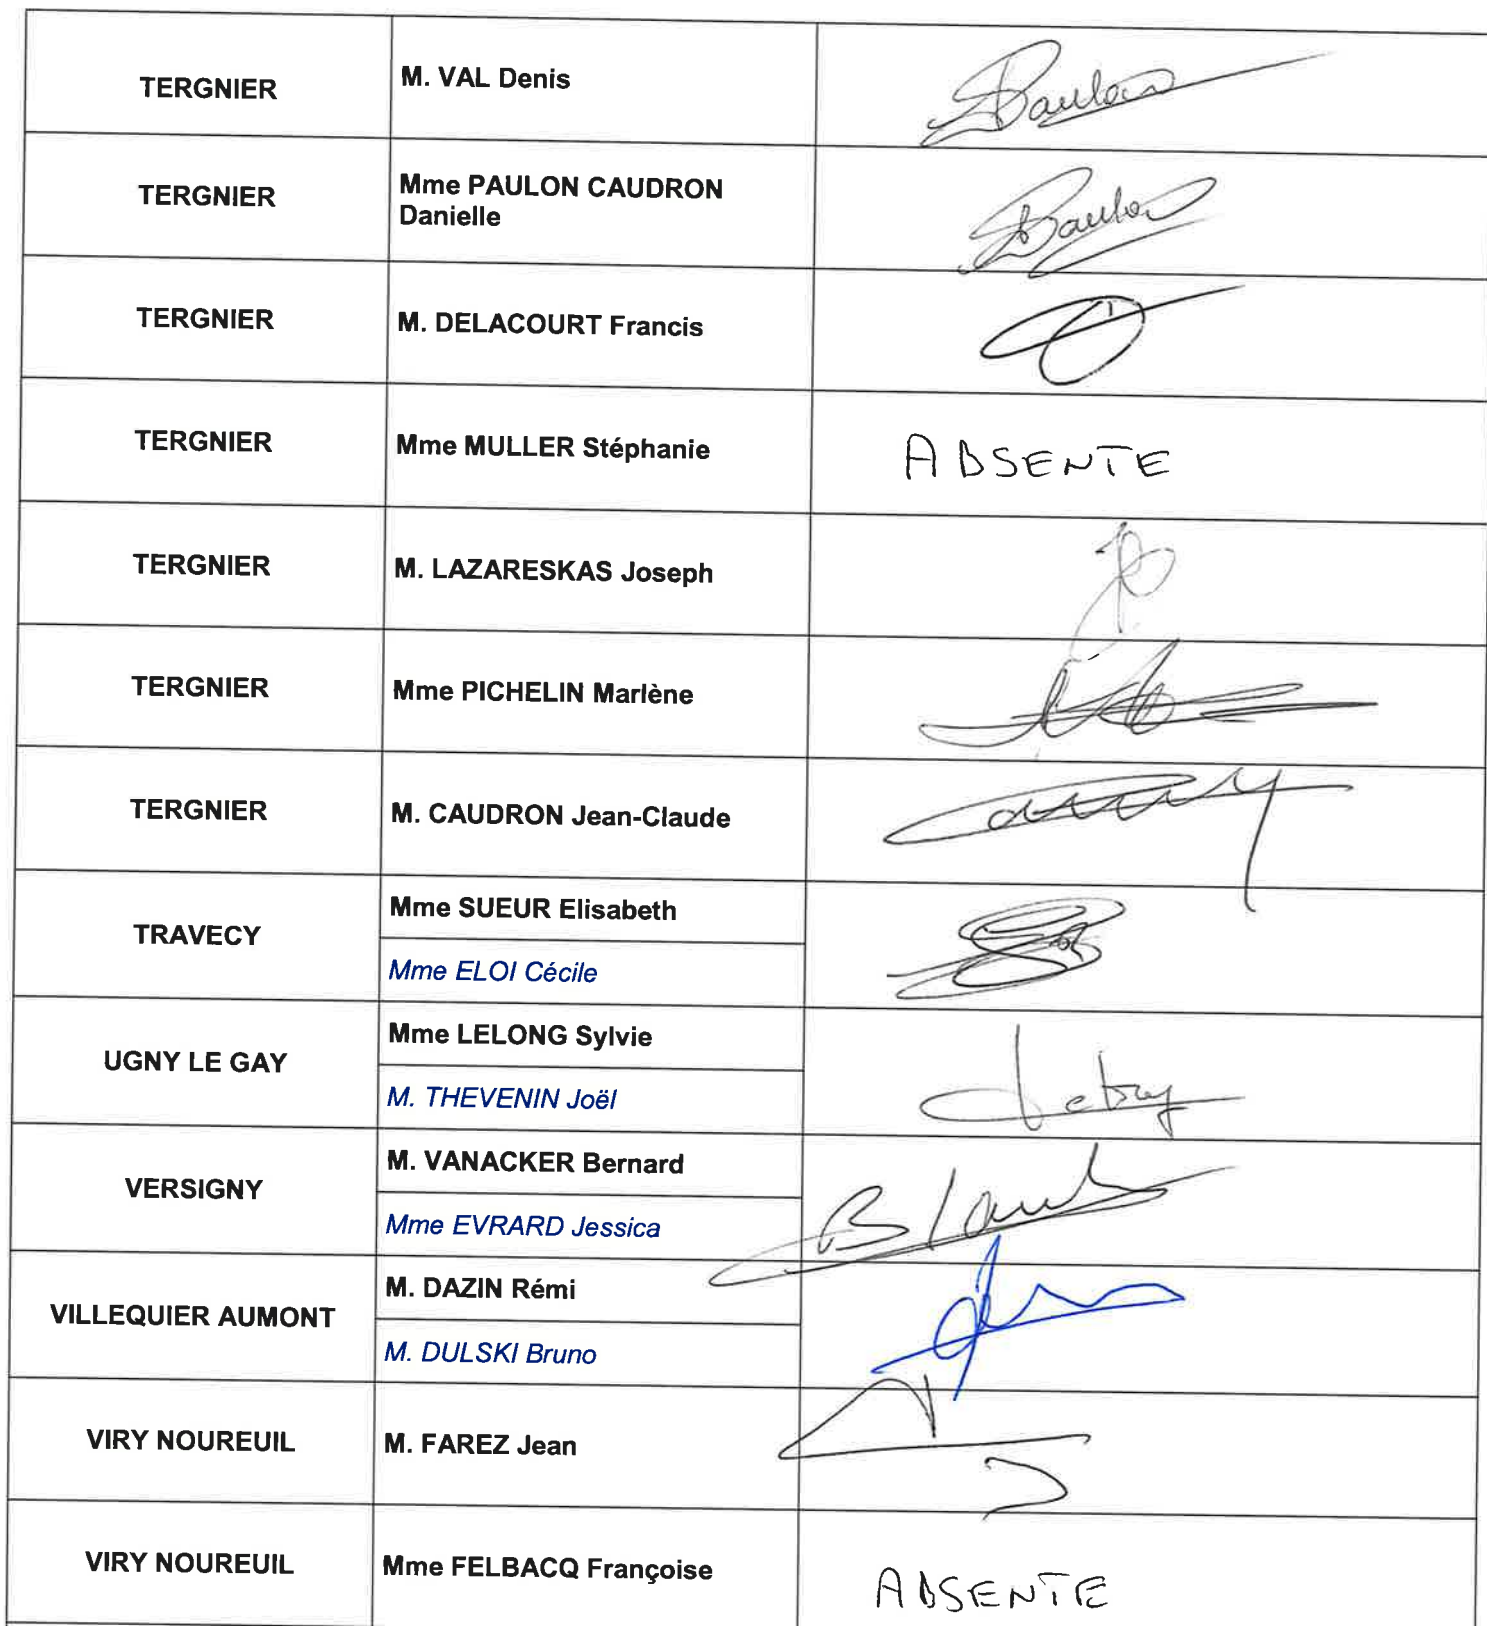 TERGNIER
M. VAL Denis
Paulon
TERGNIER
Mme PAULON CAUDRON
Danielle
Paulon
TERGNIER
M. DELACOURT Francis
TERGNIER
Mme MULLER Stéphanie
ABSENTE
TERGNIER
M. LAZARESKAS Joseph
TERGNIER
Mme PICHELIN Marlène
TERGNIER
M. CAUDRON Jean-Claude
TRAVECY
Mme SUEUR Elisabeth
Mme ELOI Cécile
UGNY LE GAY
Mme LELONG Sylvie
M. THEVENIN Joël
VERSIGNY
M. VANACKER Bernard
Mme EVRARD Jessica
VILLEQUIER AUMONT
M. DAZIN Rémi
M. DULSKI Bruno
VIRY NOUREUIL
M. FAREZ Jean
VIRY NOUREUIL
Mme FELBACQ Françoise
ABSENTE